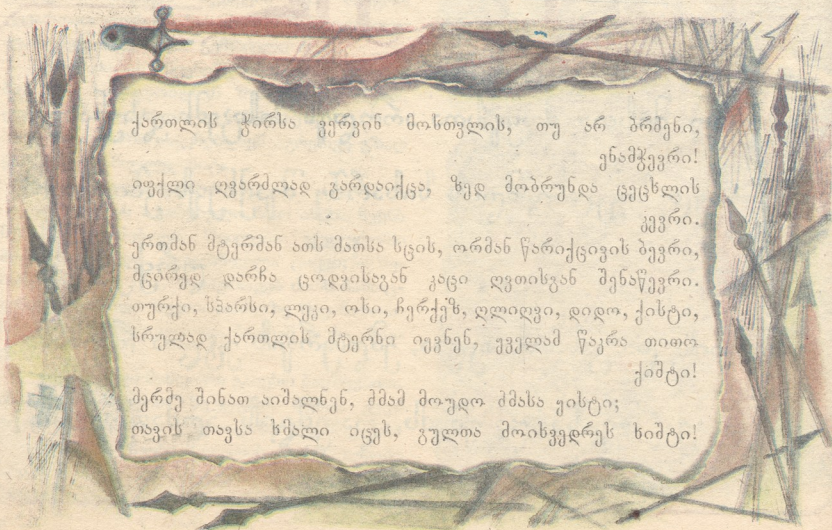 ქართლის ჭირსა ვერვინ მოსთვლის, თუ არ ბრძენი,
ენამჭევრი!
იფქლი ღვარძლად გარდაიქცა, ზედ მობრუნდა ცეცხლის
კევრი.
ერთმან მტერმან ათს მათსა სცის, ორმან წარიქცივის ბევრი,
მცირედ დარჩა ცოდვისაგან კაცი ღვთისგან შენაწევრი.
თურქი, სპარსი, ლეკი, ოსი, ჩერქეზ, ღლიღვი, დიდო, ქისტი,
სრულად ქართლის მტერნი იყვნენ, ყველამ წაკრა თითო
ქიშტი!
მერმე შინათ აიშალნენ, ძმამ მოუდო ძმასა ყისტი;
თავის თავსა ხმალი იცეს, გულთა მოისვედრეს ხიშტი!